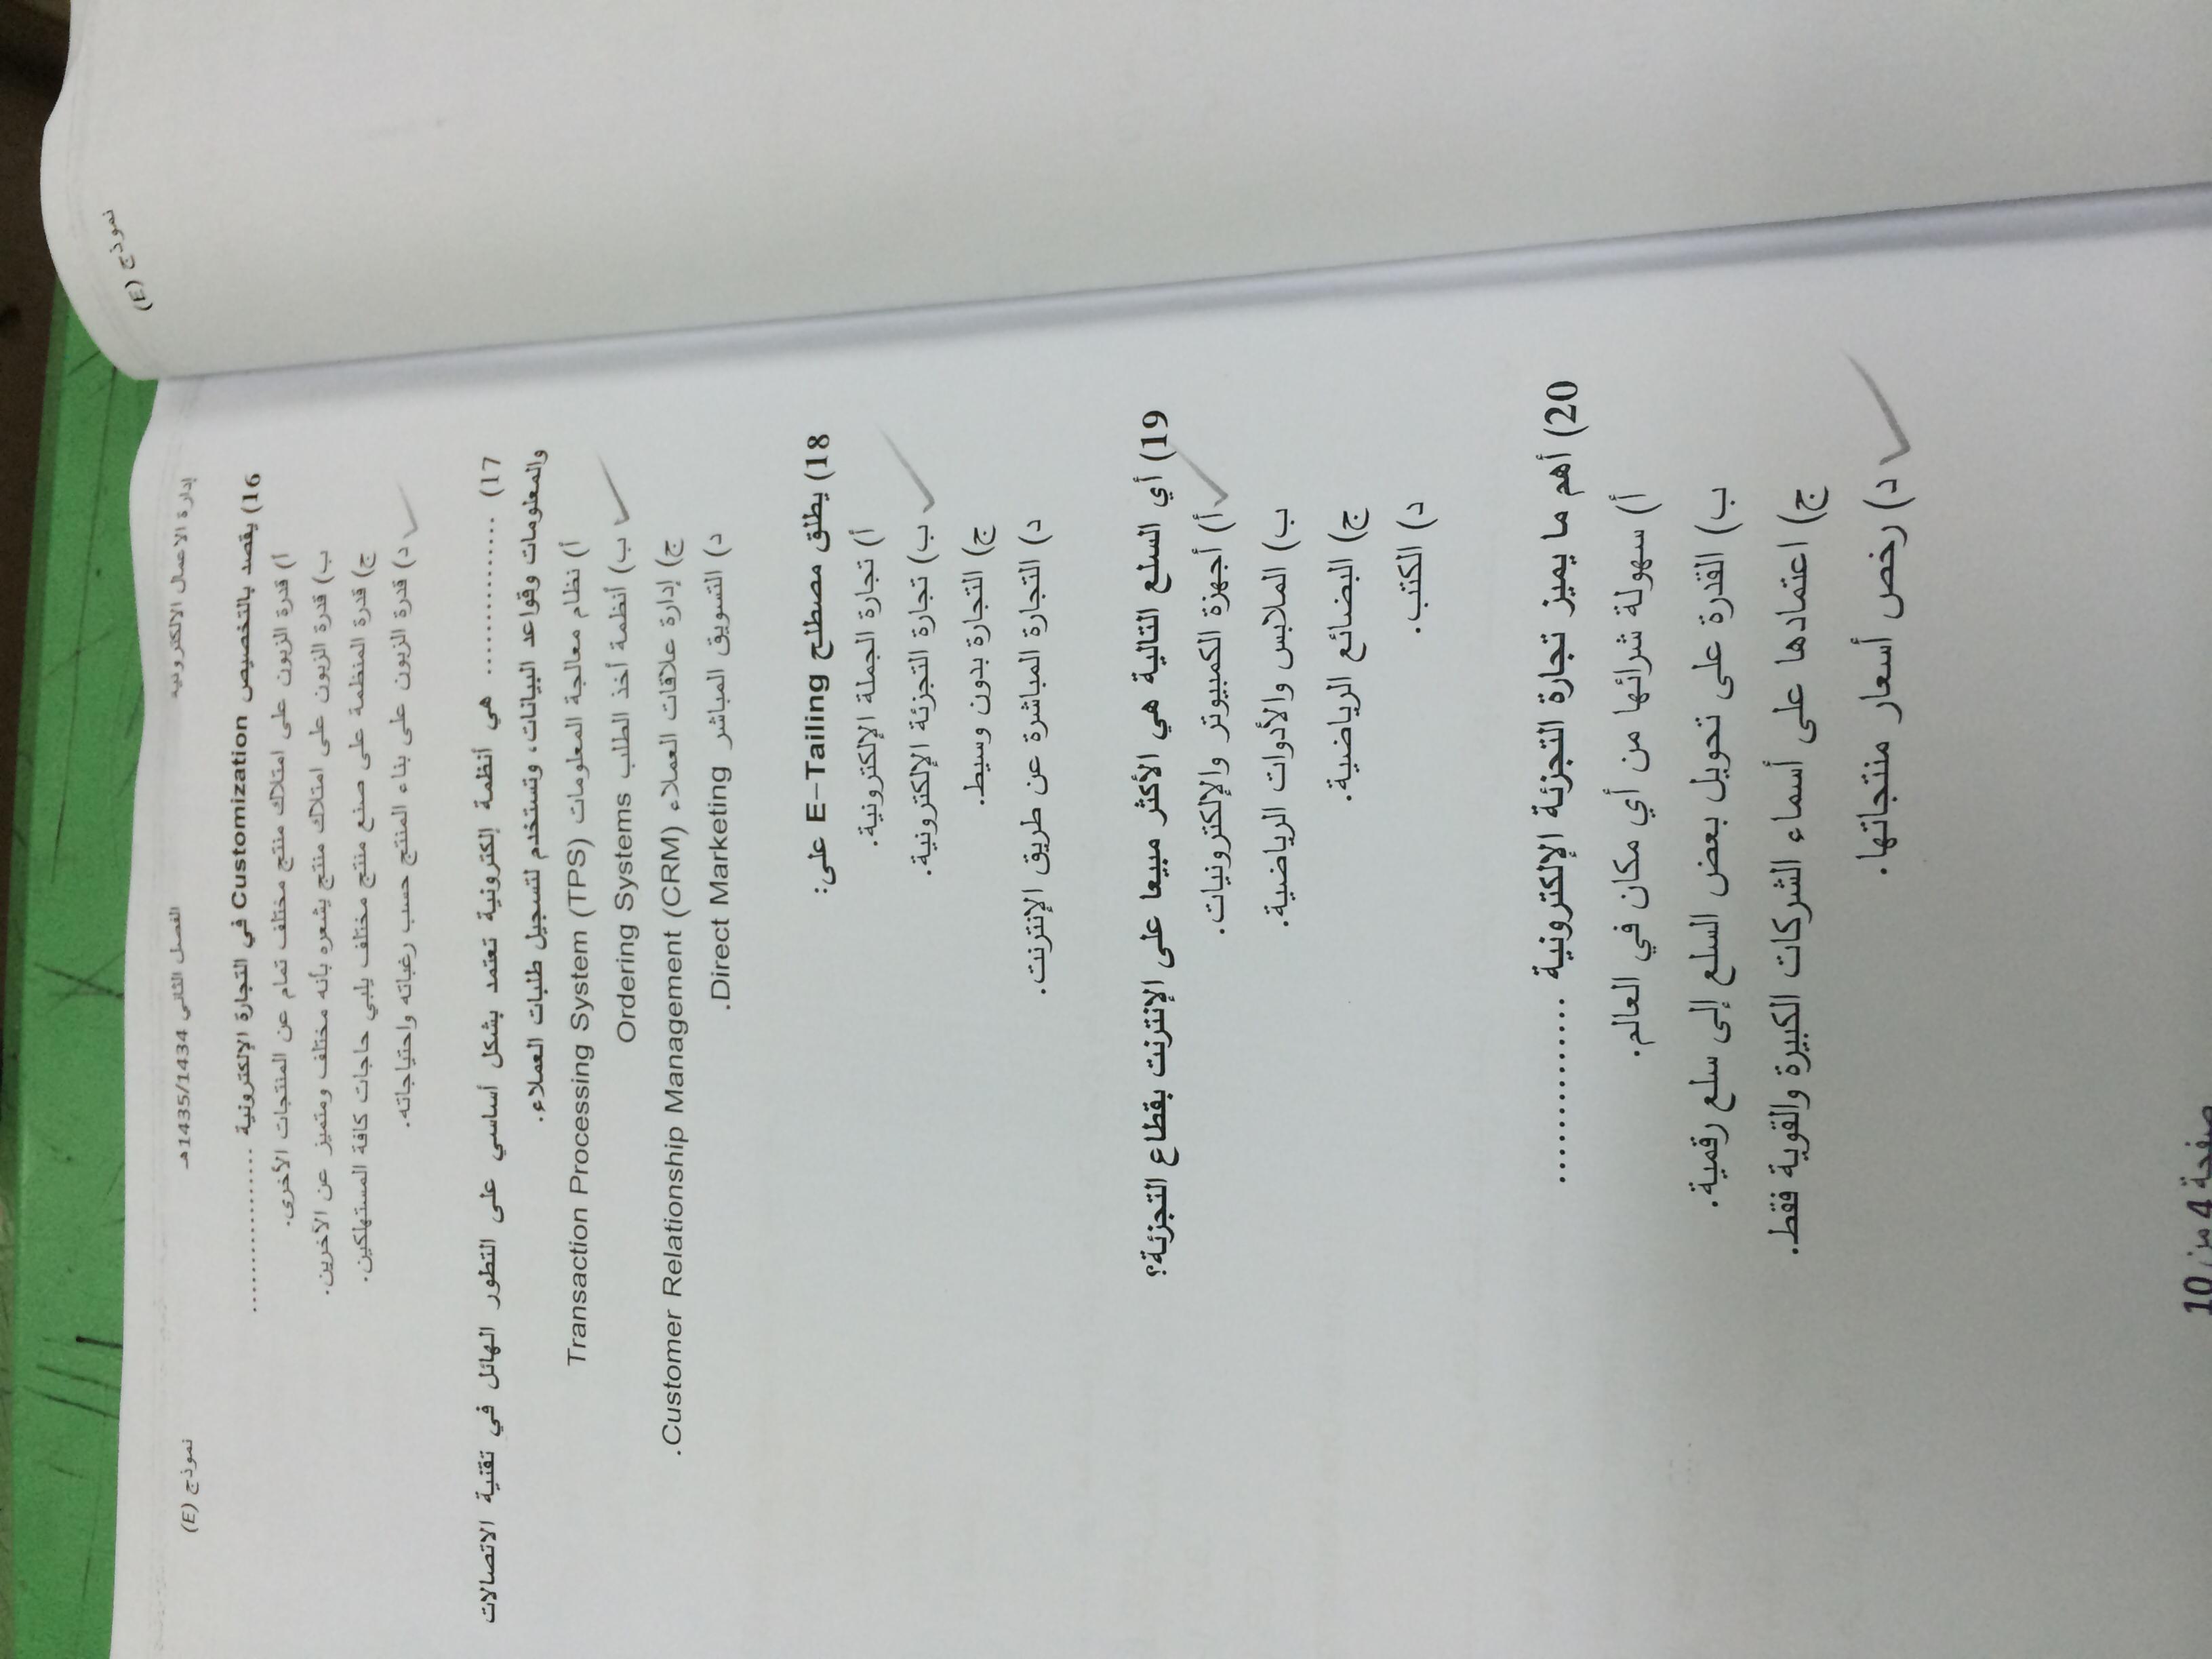 نموذج (E)
إدارة الاعمال الالكترونية
الفصل الثاني 1435/1434هـ
نموذج (E)
16) يقصد بالتخصيص Customization في التجارة الإلكترونية ................
أ) قدرة الزبون على امتلاك منتج مختلف تمام عن المنتجات الأخرى.
ب) قدرة الزبون على امتلاك منتج يشعره بأنه مختلف ومتميز عن الآخرين.
ج) قدرة المنظمة على صنع منتج مختلف يلبي حاجات كافة المستهلكين.
د) قدرة الزبون على بناء المنتج حسب رغباته واحتياجاته.
17) ................ هي أنظمة إلكترونية تعتمد بشكل أساسي على التطور الهائل في تقنية الاتصالات
والمعلومات وقواعد البيانات، وتستخدم لتسجيل طلبات العملاء.
أ) نظام معالجة المعلومات Transaction Processing System (TPS)
ب) أنظمة أخذ الطلب Ordering Systems
ج) إدارة علاقات العملاء Customer Relationship Management (CRM).
د) التسويق المباشر Direct Marketing.
18) يطلق مصطلح E-Tailing على:
أ) تجارة الجملة الإلكترونية.
ب) تجارة التجزئة الإلكترونية.
ج) التجارة بدون وسيط.
د) التجارة المباشرة عن طريق الإنترنت.
19) أي السلع التالية هي الأكثر مبيعا على الإنترنت بقطاع التجزئة؟
أ) أجهزة الكمبيوتر والإلكترونيات.
ب) الملابس والأدوات الرياضية.
ج) البضائع الرياضية.
د) الكتب.
20) أهم ما يميز تجارة التجزئة الإلكترونية ................
أ) سهولة شرائها من أي مكان في العالم.
ب) القدرة على تحويل بعض السلع إلى سلع رقمية.
ج) اعتمادها على أسماء الشركات الكبيرة والقوية فقط.
د) رخص أسعار منتجاتها.
صفحة 4 من 10